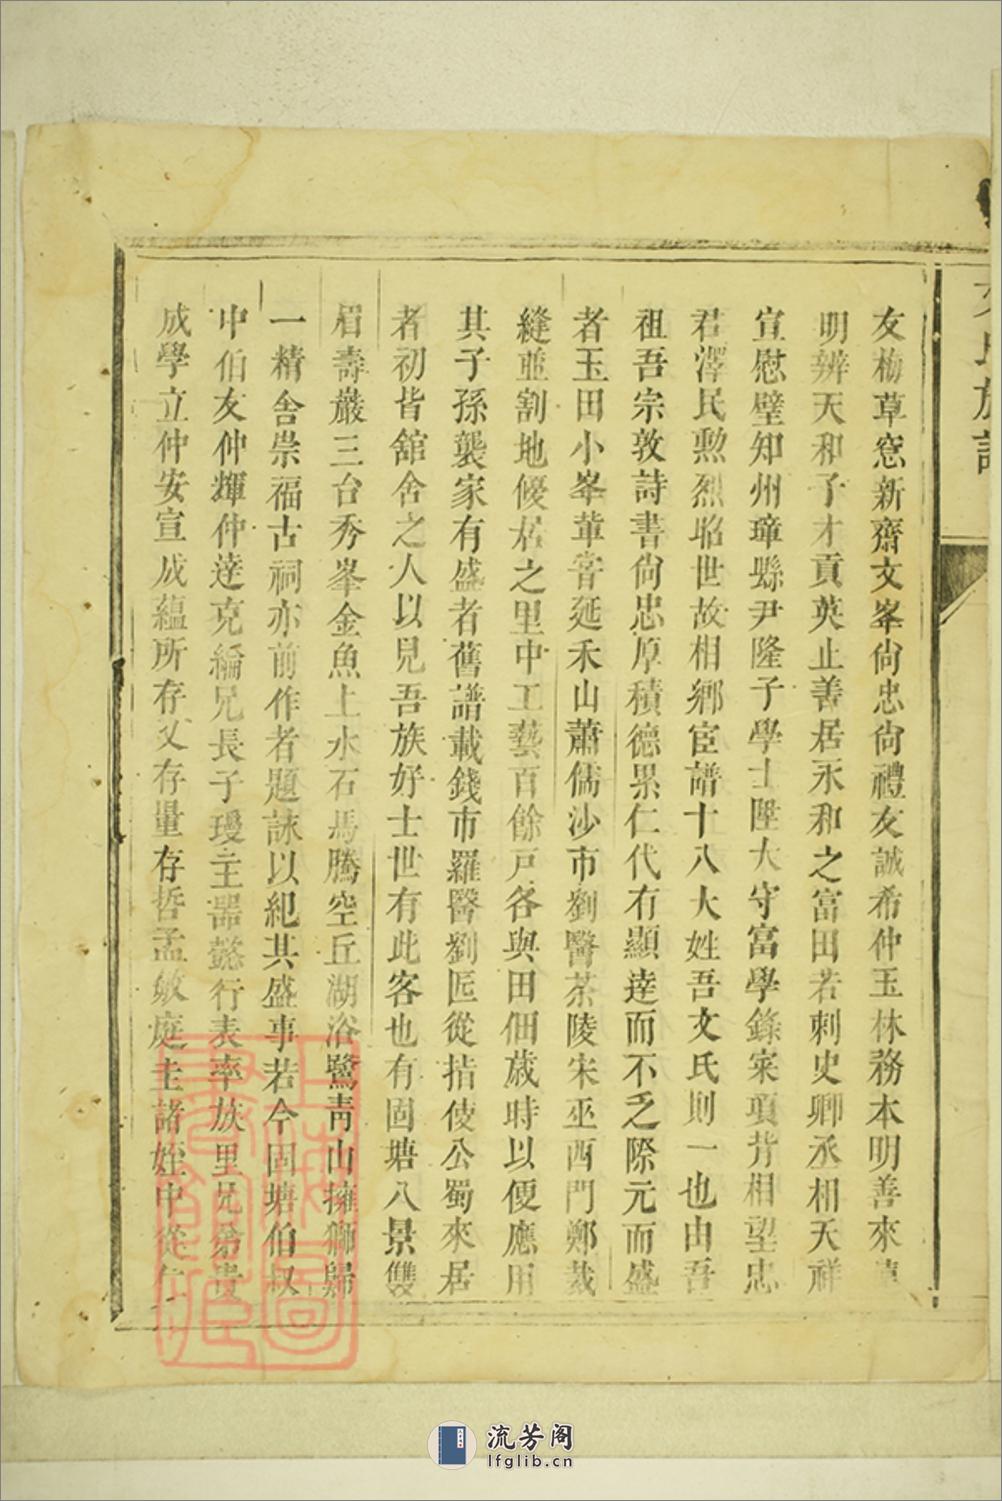 文氏族譜
友梅草窓新齋文峯尙忠尙禮友誠希仲玉林務本明善來
明辨天和子才貢英止善居永和之富田若刺史卿丞相天祥
宣慰璧知州璋縣尹隆子學士陞大守富學錄寀項背相望忠
君澤民勲烈昭世故相鄉宦譜十八大姓吾文氏則一也由吾
祖吾宗敦詩書尙忠厚積德累仁代有顯達而不乏際元而盛
者玉田小峯華窨延禾山蕭儒沙市劉醫茶陵宋巫西門鄭裁
縫並割地優居之里中工藝百餘戸各與田佃歲時以便應用
其子孫襲家有盛者舊譜載錢市羅醫劉匠從括使公蜀來居
者初皆舘舍之人以見吾族好士世有此客也有固塘八景雙
眉壽巖三台秀峯金魚上水石馬騰空丘湖浴鷺靑山擁獅歸
一精舍崇福古祠亦前作者題詠以紀其盛事若今固塘伯叔
中伯友仲輝仲達克綸兄長子璦主器懿行表率族里兄弟貴
成學立仲安宣成蘊所存父存量存哲孟敏庭圭諸姪中從仁
流芳阁
lfglib.cn